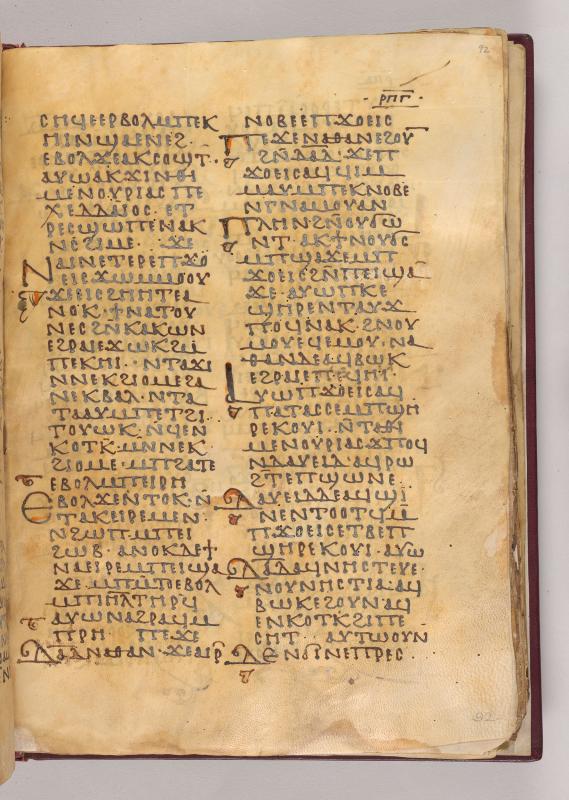 92
ⲣⲡⲅ
ⲥⲏϥⲉⲉⲣⲃⲟⲗⲙⲡⲉⲕ
ⲏⲓⲛϣⲁⲉⲛⲉϩ
ⲉⲃⲟⲗϫⲉⲁⲕⲥⲟϣⲧ
ⲁⲩⲱⲁⲕϫⲓⲛⲑⲓ
ⲙⲉⲛⲟⲩⲣⲓⲁⲥⲡⲉ
ⲭⲉⲗⲗⲁⲓⲟⲥ ⲉⲧ
ⲣⲉⲥϣⲱⲡⲉⲛⲁⲕ
ⲛⲥϩⲓⲙⲉ ϫⲉ
ⲛⲁⲓⲛⲉⲧⲉⲣⲉⲡϫⲟ
ⲉⲓⲥϫⲱⲙⲙⲟⲟⲩ
ϫⲉⲉⲓⲥϩⲏⲏⲧⲉⲁ
ⲛⲟⲕ ϯⲛⲁⲧⲟⲩ
ⲛⲉⲥϩⲛⲕⲁⲕⲱⲛ
ⲉϩⲣⲁⲓⲉϫⲱⲕϩⲙ
ⲡⲉⲕⲏⲓ ⲛⲧⲁϫⲓ
ⲛⲛⲉⲕϩⲓⲟⲙⲉϩⲁ
ⲛⲉⲕⲃⲁⲗ ⲛⲧⲁ
ⲧⲁⲁⲩⲙⲡⲉⲧϩⲓ
ⲧⲟⲩⲱⲕ ⲛϥⲉⲛ
ⲕⲟⲧⲕ ⲙⲛⲛⲉⲕ
ϩⲓⲟⲙⲉ ⲙⲡϩⲁⲧⲉ
ⲉⲃⲟⲗⲙⲡⲉⲓⲣⲏ
ⲉⲃⲟⲗϫⲉⲛⲧⲟⲕ ⲛ
ⲧⲁⲕⲉⲓⲣⲉⲙⲉⲛ
ⲛϩⲱⲡ ⲙⲡⲉⲓ
ϩⲱⲃ ⲁⲛⲟⲕⲇⲉϯ
ⲛⲁⲉⲓⲣⲉⲙⲡⲉⲓϣⲁ
ϫⲉ ⲙⲡⲙⲧⲟⲉⲃⲟⲗ
ⲙⲡⲓⲏⲗⲧⲏⲣϥ
ⲁⲩⲱⲛⲁϩⲣⲁϥⲙ
ⲡⲣⲏ ⲡⲉϫⲉ
ⲇⲁⲇⲛⲁⲑⲁⲛ ϫⲉⲁⲓⲣ
ⲛⲟⲃⲉⲉⲡϫⲟⲉⲓⲥ
ⲡⲉϫⲉⲛⲁⲑⲁⲛⲉϩⲟⲩ
ϩⲛⲇⲁⲇ ϫⲉⲡ
ϫⲟⲉⲓⲥⲁϥϥⲓⲙ
ⲙⲁⲩⲙⲡⲉⲕⲛⲟⲃⲉ
ⲛⲅⲛⲁⲙⲟⲩⲁⲛ
ⲡⲗⲏⲛϩⲛⲟⲩϭⲱ
ⲛⲧ ⲁⲕϯⲛⲟⲩϭⲥ
ⲙⲡϣⲁϫⲉⲙⲡ
ϫⲟⲉⲓⲥϩⲙⲡⲉⲓϣⲁ
ϫⲉ ⲁⲩⲱⲡⲕⲉ
ϣⲏⲣⲉⲛⲧⲁⲩϫ
ⲡⲟϥⲛⲁⲕ ϩⲛⲟⲩ
ⲙⲟⲩⲉϥⲉⲙⲟⲩ ⲛⲁ
ⲑⲁⲛⲇⲉⲁϥⲃⲱⲕ
ⲉϩⲣⲁⲓⲉⲡⲉϥⲏⲓ
ⲁⲩⲱⲡϫⲟⲉⲓⲥⲁϥ
ⲡⲁⲧⲁⲥⲥⲉⲙⲡϣⲏ
ⲣⲉⲕⲟⲩⲓ ⲛⲧⲁⲑⲓ
ⲙⲉⲛⲟⲩⲣⲓⲁⲥϫⲡⲟϥ
ⲛⲇⲁⲩⲉⲓⲇ ⲁϥⲣⲱ
ϩⲧⲉⲡϣⲱⲛⲉ
ⲇⲁⲩⲉⲓⲇⲇⲉⲁϥϣⲓ
ⲛⲉⲛⲧⲟⲟⲧϥⲙ
ⲡϫⲟⲉⲓⲥⲉⲧⲃⲉⲡ
ϣⲏⲣⲉⲕⲟⲩⲓ ⲁⲩⲱ
ⲇⲁⲇⲁϥⲛⲏⲥⲧⲉⲩⲉ
ⲛⲟⲩⲛⲏⲥⲧⲓⲁ ⲁϥ
ⲃⲱⲕⲉϩⲟⲩⲛⲁϥ
ⲉⲛⲕⲟⲧⲕϩⲓⲡⲉ
ⲥⲏⲧ ⲁⲩⲧⲱⲟⲩⲛ
ⲇⲉⲛϭⲓⲛⲉⲡⲣⲉⲥ
92